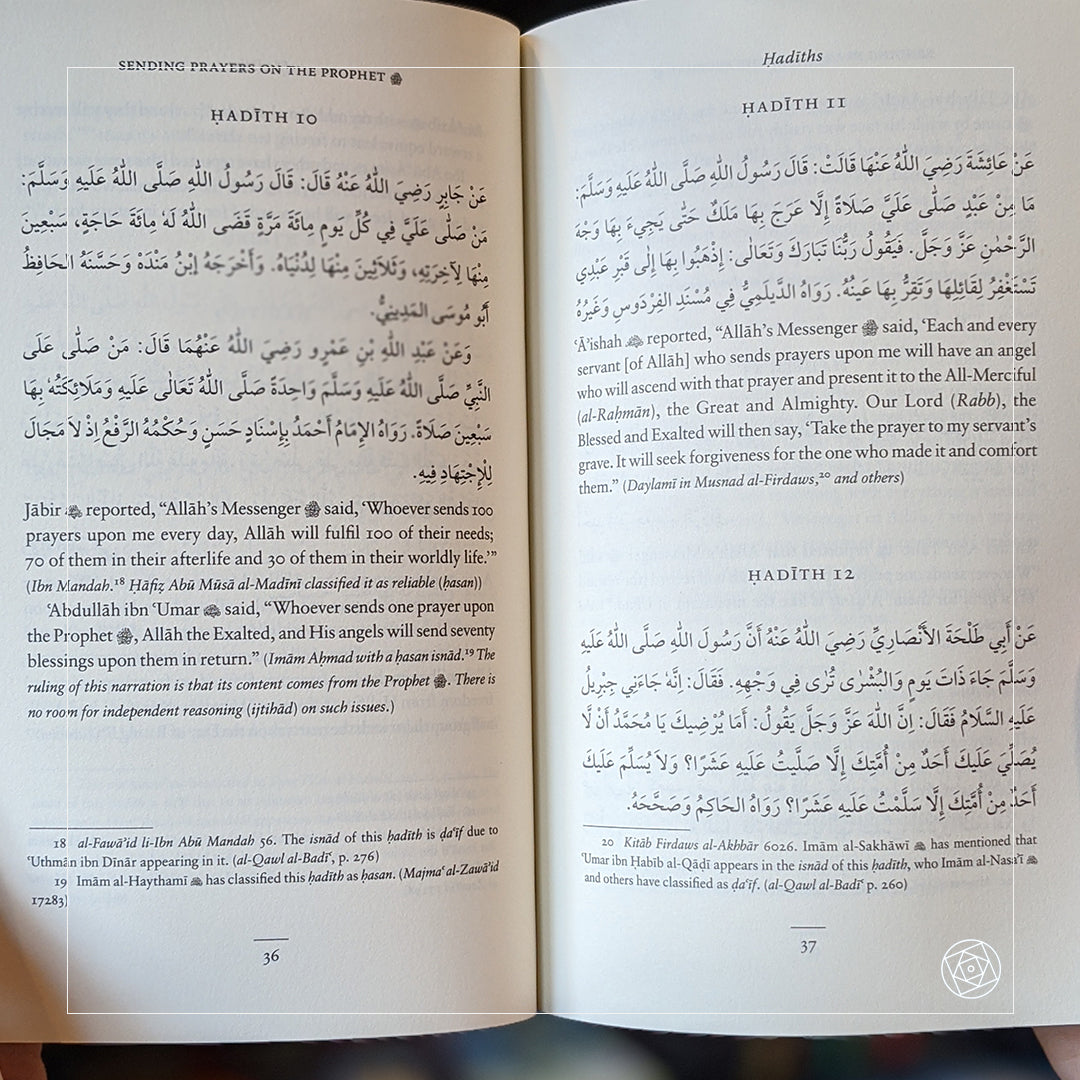 SENDING PRAYERS ON THE PROPHET ﷺ
ḤADĪTH 10
عَنْ جَابِرٍ رَضِيَ اللّٰهُ عَنْهُ قَالَ: قَالَ رَسُولُ اللّٰهِ صَلَّى اللّٰهُ عَلَيهِ وَسَلَّمَ:
مَنْ صَلّٰى عَلَيَّ فِي كُلِّ يَومٍ مِائَةَ مَرَّةٍ قَضَى اللّٰهُ لَهُ مِائَةَ حَاجَةٍ، سَبْعِينَ
مِنْهَا لِآخِرَتِهِ، وَثَلَاثِينَ مِنْهَا لِدُنْيَاهُ. وَأَخْرَجَهُ اِبْنُ مَنْدَهْ وَحَسَّنَهُ الحَافِظُ
أَبُو مُوسَى المَدِينِيُّ.
وَعَنْ عَبْدِ اللّٰهِ بْنِ عَمْرٍو رَضِيَ اللّٰهُ عَنْهُمَا قَالَ: مَنْ صَلّٰى عَلَى
النَّبِيِّ صَلَّى اللّٰهُ عَلَيهِ وَسَلَّمَ وَاحِدَةً صَلَّى اللّٰهُ تَعَالٰى عَلَيهِ وَمَلَائِكَتُهُ بِهَا
سَبْعِينَ صَلَاةً. رَوَاهُ الإِمَامُ أَحْمَدُ بِإِسْنَادٍ حَسَنٍ وَحُكْمُهُ الرَّفْعُ اِذْ لاَ مَجَالَ
لِلْاِجْتِهَادِ فِيهِ.
Jābir reported, “Allāh’s Messenger ﷺ said, ‘Whoever sends 100
prayers upon me every day, Allāh will fulfil 100 of their needs;
70 of them in their afterlife and 30 of them in their worldly life.’”
(Ibn Mandah.¹⁸ Ḥāfiẓ Abū Mūsā al-Madīnī classified it as reliable (ḥasan))
ʿAbdullāh ibn ʿUmar said, “Whoever sends one prayer upon
the Prophet ﷺ, Allāh the Exalted, and His angels will send seventy
blessings upon them in return.” (Imām Aḥmad with a ḥasan isnād.¹⁹ The
ruling of this narration is that its content comes from the Prophet ﷺ. There is
no room for independent reasoning (ijtihād) on such issues.)
18 al-Fawāʾid li-Ibn Abū Mandah 56. The isnād of this ḥadīth is ḍaʿīf due to
ʿUthmān ibn Dīnār appearing in it. (al-Qawl al-Badīʿ, p. 276)
19 Imām al-Haythamī has classified this ḥadīth as ḥasan. (Majmaʿ al-Zawāʾid
17283)
36
Ḥadīths
ḤADĪTH 11
عَنْ عَائِشَةَ رَضِيَ اللّٰهُ عَنْهَا قَالَتْ: قَالَ رَسُولُ اللّٰهِ صَلَّى اللّٰهُ عَلَيهِ وَسَلَّمَ:
مَا مِنْ عَبْدٍ صَلّٰى عَلَيَّ صَلَاةً إِلَّا عَرَجَ بِهَا مَلَكٌ حَتّٰى يَجِيءَ بِهَا وَجْهَ
الرَّحْمٰنِ عَزَّ وَجَلَّ. فَيَقُولُ رَبُّنَا تَبَارَكَ وَتَعَالٰى: اِذْهَبُوا بِهَا إِلٰى قَبْرِ عَبْدِي
تَسْتَغْفِرُ لِقَائِلِهَا وَتَقِرُّ بِهَا عَينُهُ. رَوَاهُ الدَّيلَمِيُّ فِي مُسْنَدِ الفِرْدَوسِ وَغَيرُهُ
ʿĀʾishah reported, “Allāh’s Messenger ﷺ said, ‘Each and every
servant [of Allāh] who sends prayers upon me will have an angel
who will ascend with that prayer and present it to the All-Merciful
(al-Raḥmān), the Great and Almighty. Our Lord (Rabb), the
Blessed and Exalted will then say, ‘Take the prayer to my servant’s
grave. It will seek forgiveness for the one who made it and comfort
them.” (Daylamī in Musnad al-Firdaws,²⁰ and others)
ḤADĪTH 12
عَنْ أَبِي طَلْحَةَ الأَنْصَارِيِّ رَضِيَ اللّٰهُ عَنْهُ أَنَّ رَسُولَ اللّٰهِ صَلَّى اللّٰهُ عَلَيهِ
وَسَلَّمَ جَاءَ ذَاتَ يَومٍ وَالبُشْرٰى تُرٰى فِي وَجْهِهِ. فَقَالَ: اِنَّهُ جَاءَنِي جِبْرِيلُ
عَلَيهِ السَّلَامُ فَقَالَ: اِنَّ اللّٰهَ عَزَّ وَجَلَّ يَقُولُ: أَمَا يُرْضِيكَ يَا مُحَمَّدُ أَنْ لَّا
يُصَلِّيَ عَلَيكَ أَحَدٌ مِنْ أُمَّتِكَ إِلَّا صَلَّيتُ عَلَيهِ عَشَرًا؟ وَلاَ يُسَلِّمَ عَلَيكَ
أَحَدٌ مِنْ أُمَّتِكَ إِلَّا سَلَّمْتُ عَلَيهِ عَشَرًا؟ رَوَاهُ الحَاكِمُ وَصَحَّحَهُ.
20 Kitāb Firdaws al-Akhbār 6026. Imām al-Sakhāwī has mentioned that
ʿUmar ibn Ḥabīb al-Qāḍī appears in the isnād of this ḥadīth, who Imām al-Nasāʾī
and others have classified as ḍaʿīf. (al-Qawl al-Badīʿ p. 260)
37